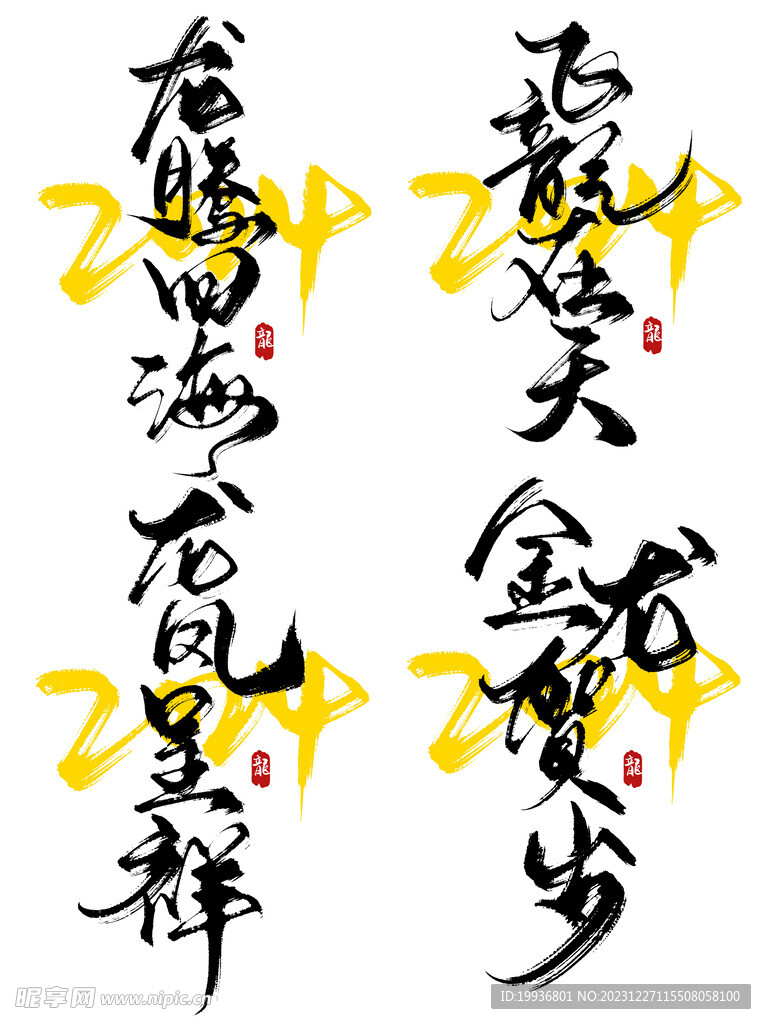 龙腾四海
2024
龍
飞龍在天
2024
龍
龙凤呈祥
2024
龍
金龙贺岁
2024
龍
昵享网 www.nipic.cn
ID:19936801 NO:20231227115508058100